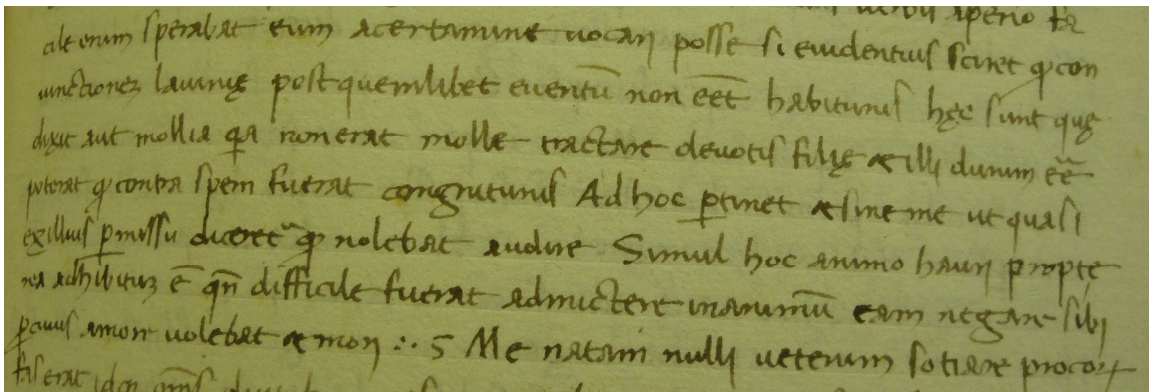 verbis aperio fa
cile enim sperabat eum acertamine uocari posse si euidentius sciret ꝙ con
iunctionez lauinię post quemlibet euentū non eēt habiturus hęc sunt quę
dixit aut mollia qa non erat molle tractare de uotis filię & illi durum eē
poterat ꝙ contra spem fuerat congniturus Ad hoc ꝑtinet & sine me ut quasi
ex illius ꝑmissu diceret ꝙ nolebat audire Simul hoc animo hauri propte
rea adhibituz ē qn̄ difficile fuerat admictere in animū eam negare sibi
ꝑ cuius amore uolebat & mori ∴ S Me natam nulli ueterum sotiare procoꝝ
fas erat idcn